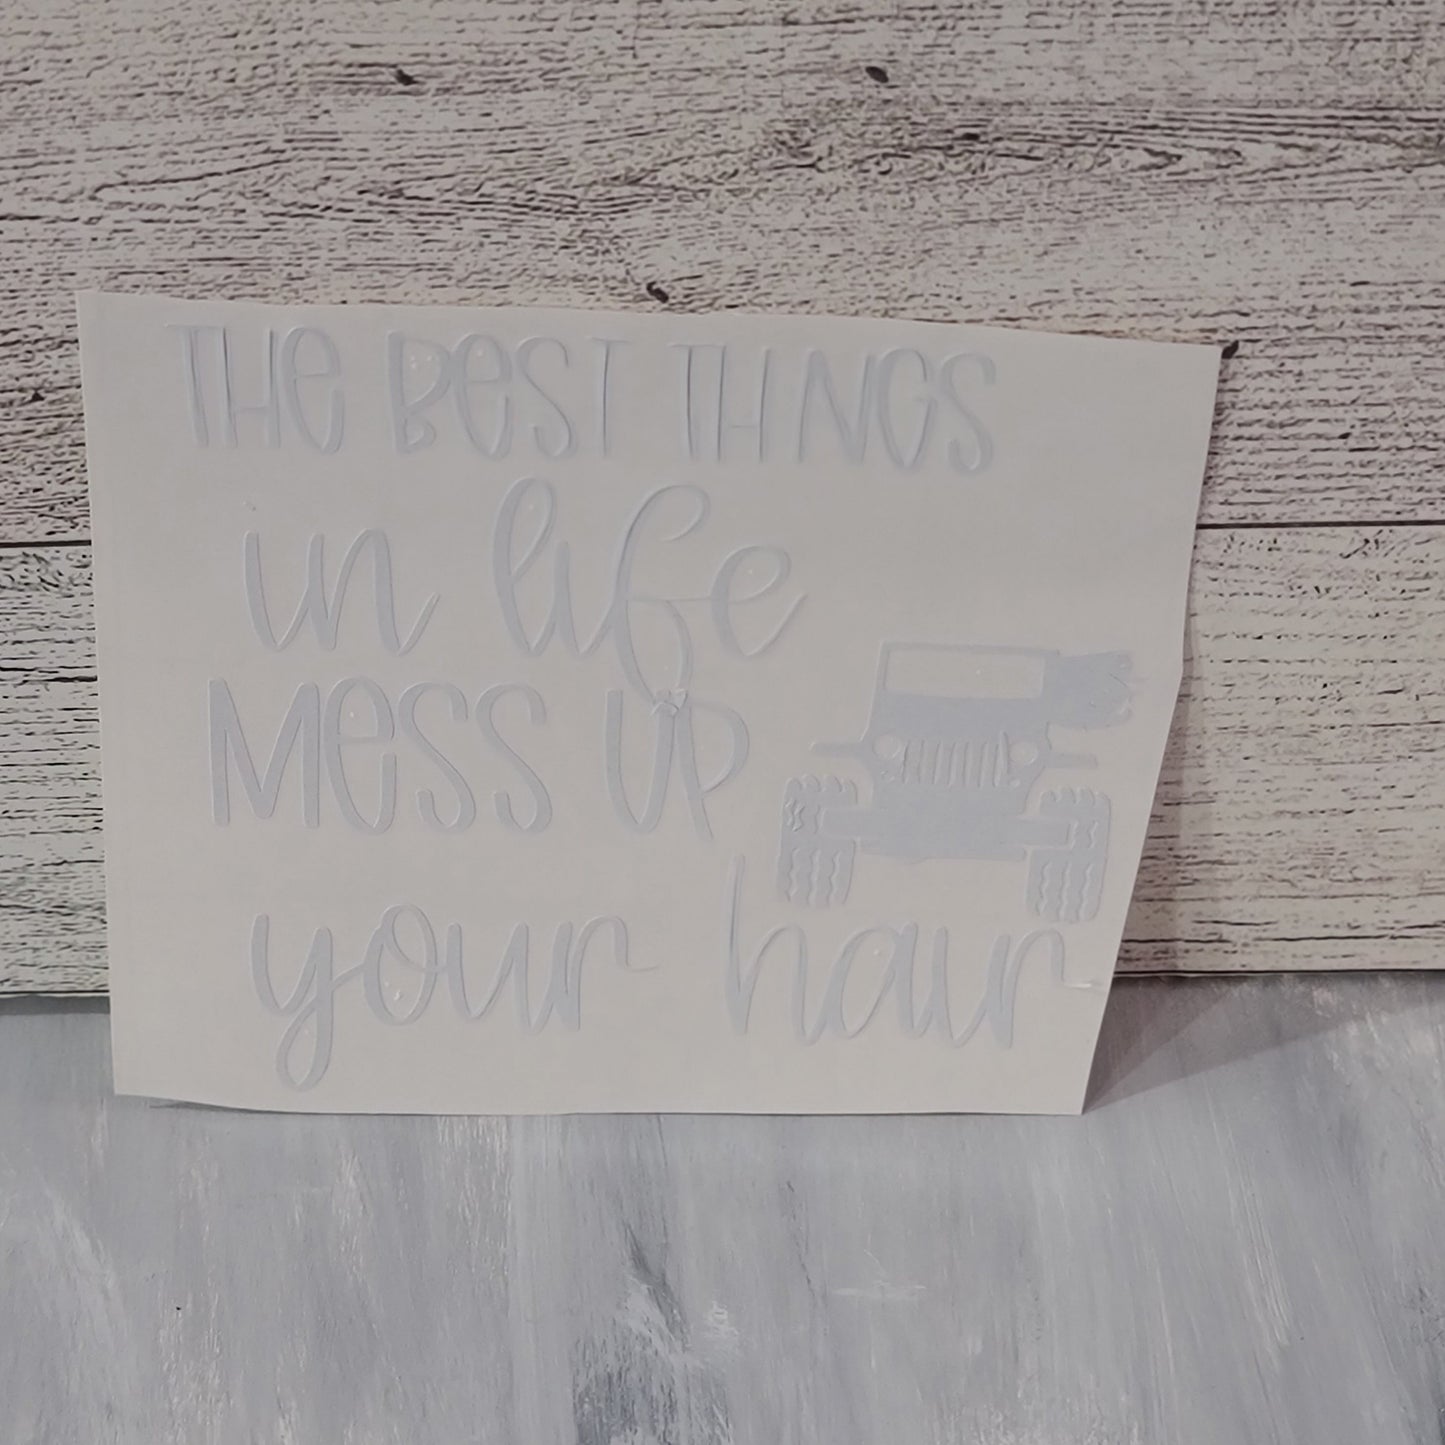 THE BEST THINGS
in life
MESS UP
your hair